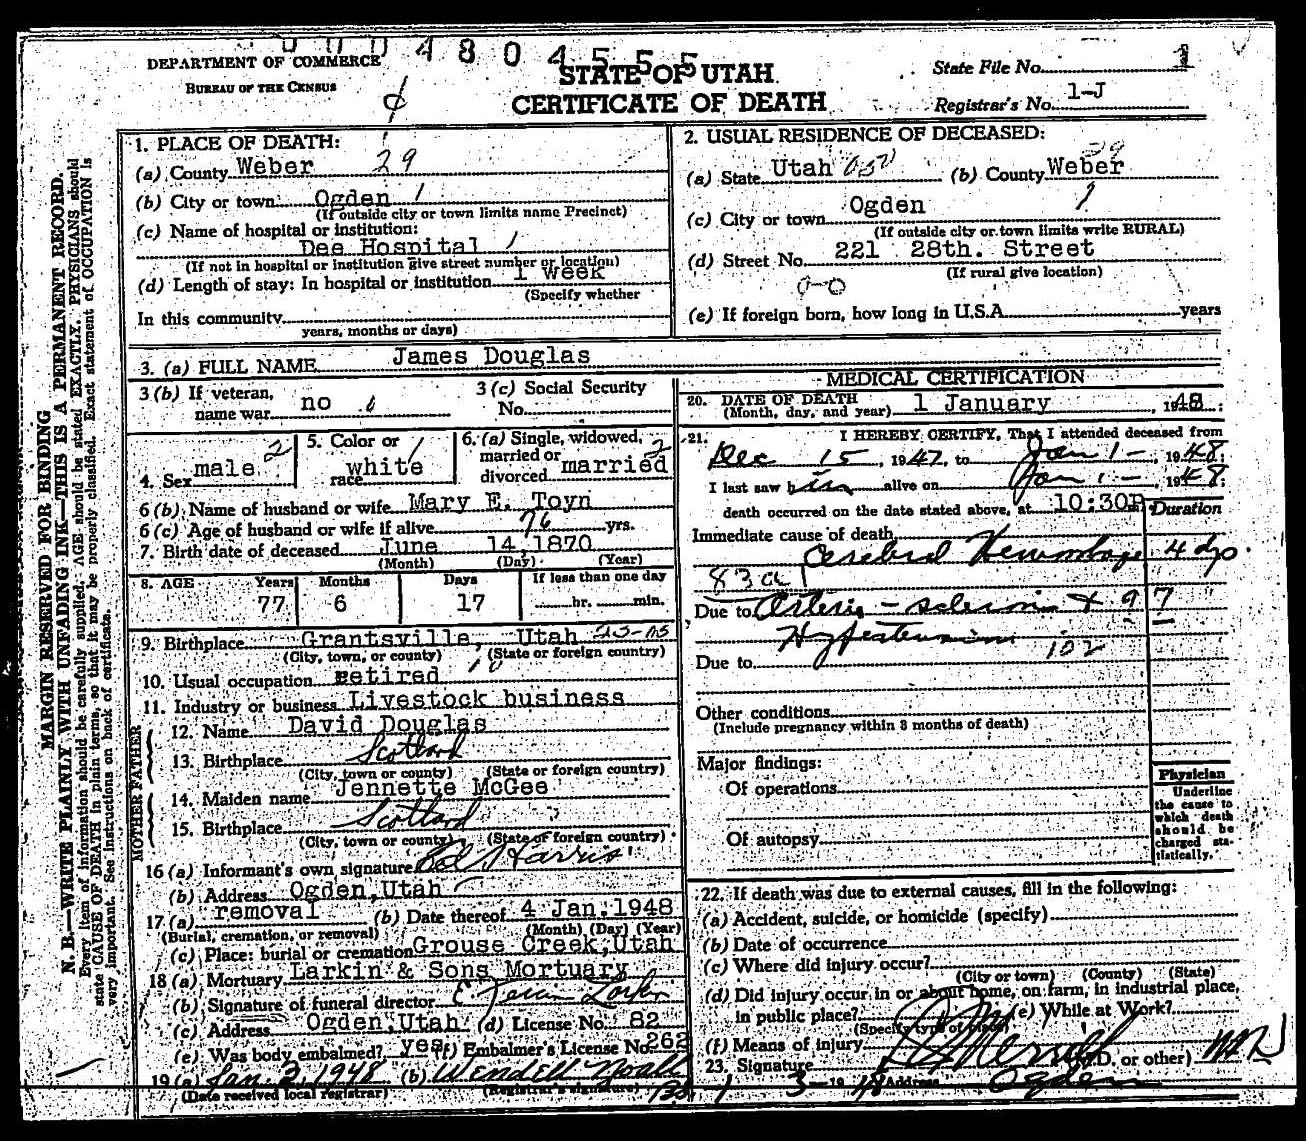 0004804555
DEPARTMENT OF COMMERCE
BUREAU OF THE CENSUS
STATE OF UTAH
CERTIFICATE OF DEATH
State File No. 1
Registrar's No. 1-J
MARGIN RESERVED FOR BINDING
N. B.—WRITE PLAINLY WITH UNFADING INK—THIS IS A PERMANENT RECORD.
Every item of information should be carefully supplied. AGE should be stated EXACTLY. PHYSICIANS should
state CAUSE OF DEATH in plain terms, so that it may be properly classified. Exact statement of OCCUPATION is
very important. See instructions on back of certificate.
1. PLACE OF DEATH:
(a) County Weber 29
(b) City or town Ogden 1
(If outside city or town limits name Precinct)
(c) Name of hospital or institution:
Dee Hospital 1
(If not in hospital or institution give street number or location)
(d) Length of stay: In hospital or institution 1 week
(Specify whether
In this community
years, months or days)
2. USUAL RESIDENCE OF DECEASED:
(a) State Utah (b) County Weber 29
(c) City or town Ogden 1
(If outside city or town limits write RURAL)
(d) Street No. 221 28th. Street
(If rural give location)
0-0
(e) If foreign born, how long in U.S.A. years
3. (a) FULL NAME James Douglas
3 (b) If veteran, name war no
3 (c) Social Security No.
4. Sex male 2
5. Color or race white 1
6. (a) Single, widowed, married or divorced married 2
6 (b) Name of husband or wife Mary E. Toyn
6 (c) Age of husband or wife if alive 76 yrs.
7. Birth date of deceased June 14, 1870
(Month) (Day) (Year)
8. AGE Years Months Days If less than one day
77 6 17 hr. min.
9. Birthplace Grantsville, Utah
(City, town, or county) (State or foreign country)
10. Usual occupation retired
11. Industry or business Livestock business
FATHER
12. Name David Douglas
13. Birthplace Scotland
(City, town or county) (State or foreign country)
MOTHER
14. Maiden name Jennette McGee
15. Birthplace Scotland
(City, town or county) (State or foreign country)
16 (a) Informant's own signature Ed Harris
(b) Address Ogden, Utah
17 (a) removal (b) Date thereof 4 Jan. 1948
(Burial, cremation, or removal) (Month) (Day) (Year)
(c) Place: burial or cremation Grouse Creek, Utah
18 (a) Mortuary Larkin & Sons Mortuary
(b) Signature of funeral director Larkin
(c) Address Ogden, Utah (d) License No. 82
(e) Was body embalmed? yes (f) Embalmer's License No. 262
19 (a) Jan. 2, 1948 (b) Wendell
(Date received local registrar) (Registrar's signature)
MEDICAL CERTIFICATION
20. DATE OF DEATH
(Month, day, and year) 1 January, 1948;
21. I HEREBY CERTIFY, That I attended deceased from
Dec 15, 1947, to Jan 1-, 1948;
I last saw him alive on Jan 1-, 1948;
death occurred on the date stated above, at 10:30P
Duration
Immediate cause of death
Cerebral Hemorrhage 4 dys.
83a
Due to Arterio-sclerosis + 97 ?
Hypertension 102
Due to
Other conditions
(Include pregnancy within 3 months of death)
Major findings:
Of operations
Of autopsy
Physician
Underline
the cause to
which death
should be
charged sta-
tistically.
22. If death was due to external causes, fill in the following:
(a) Accident, suicide, or homicide (specify)
(b) Date of occurrence
(c) Where did injury occur?
(City or town) (County) (State)
(d) Did injury occur in or about home, on farm, in industrial place,
in public place? (e) While at Work?
(Specify type of place)
(f) Means of injury
23. Signature Merrill (M.D. or other) MD
1-3-1948 Address Ogden